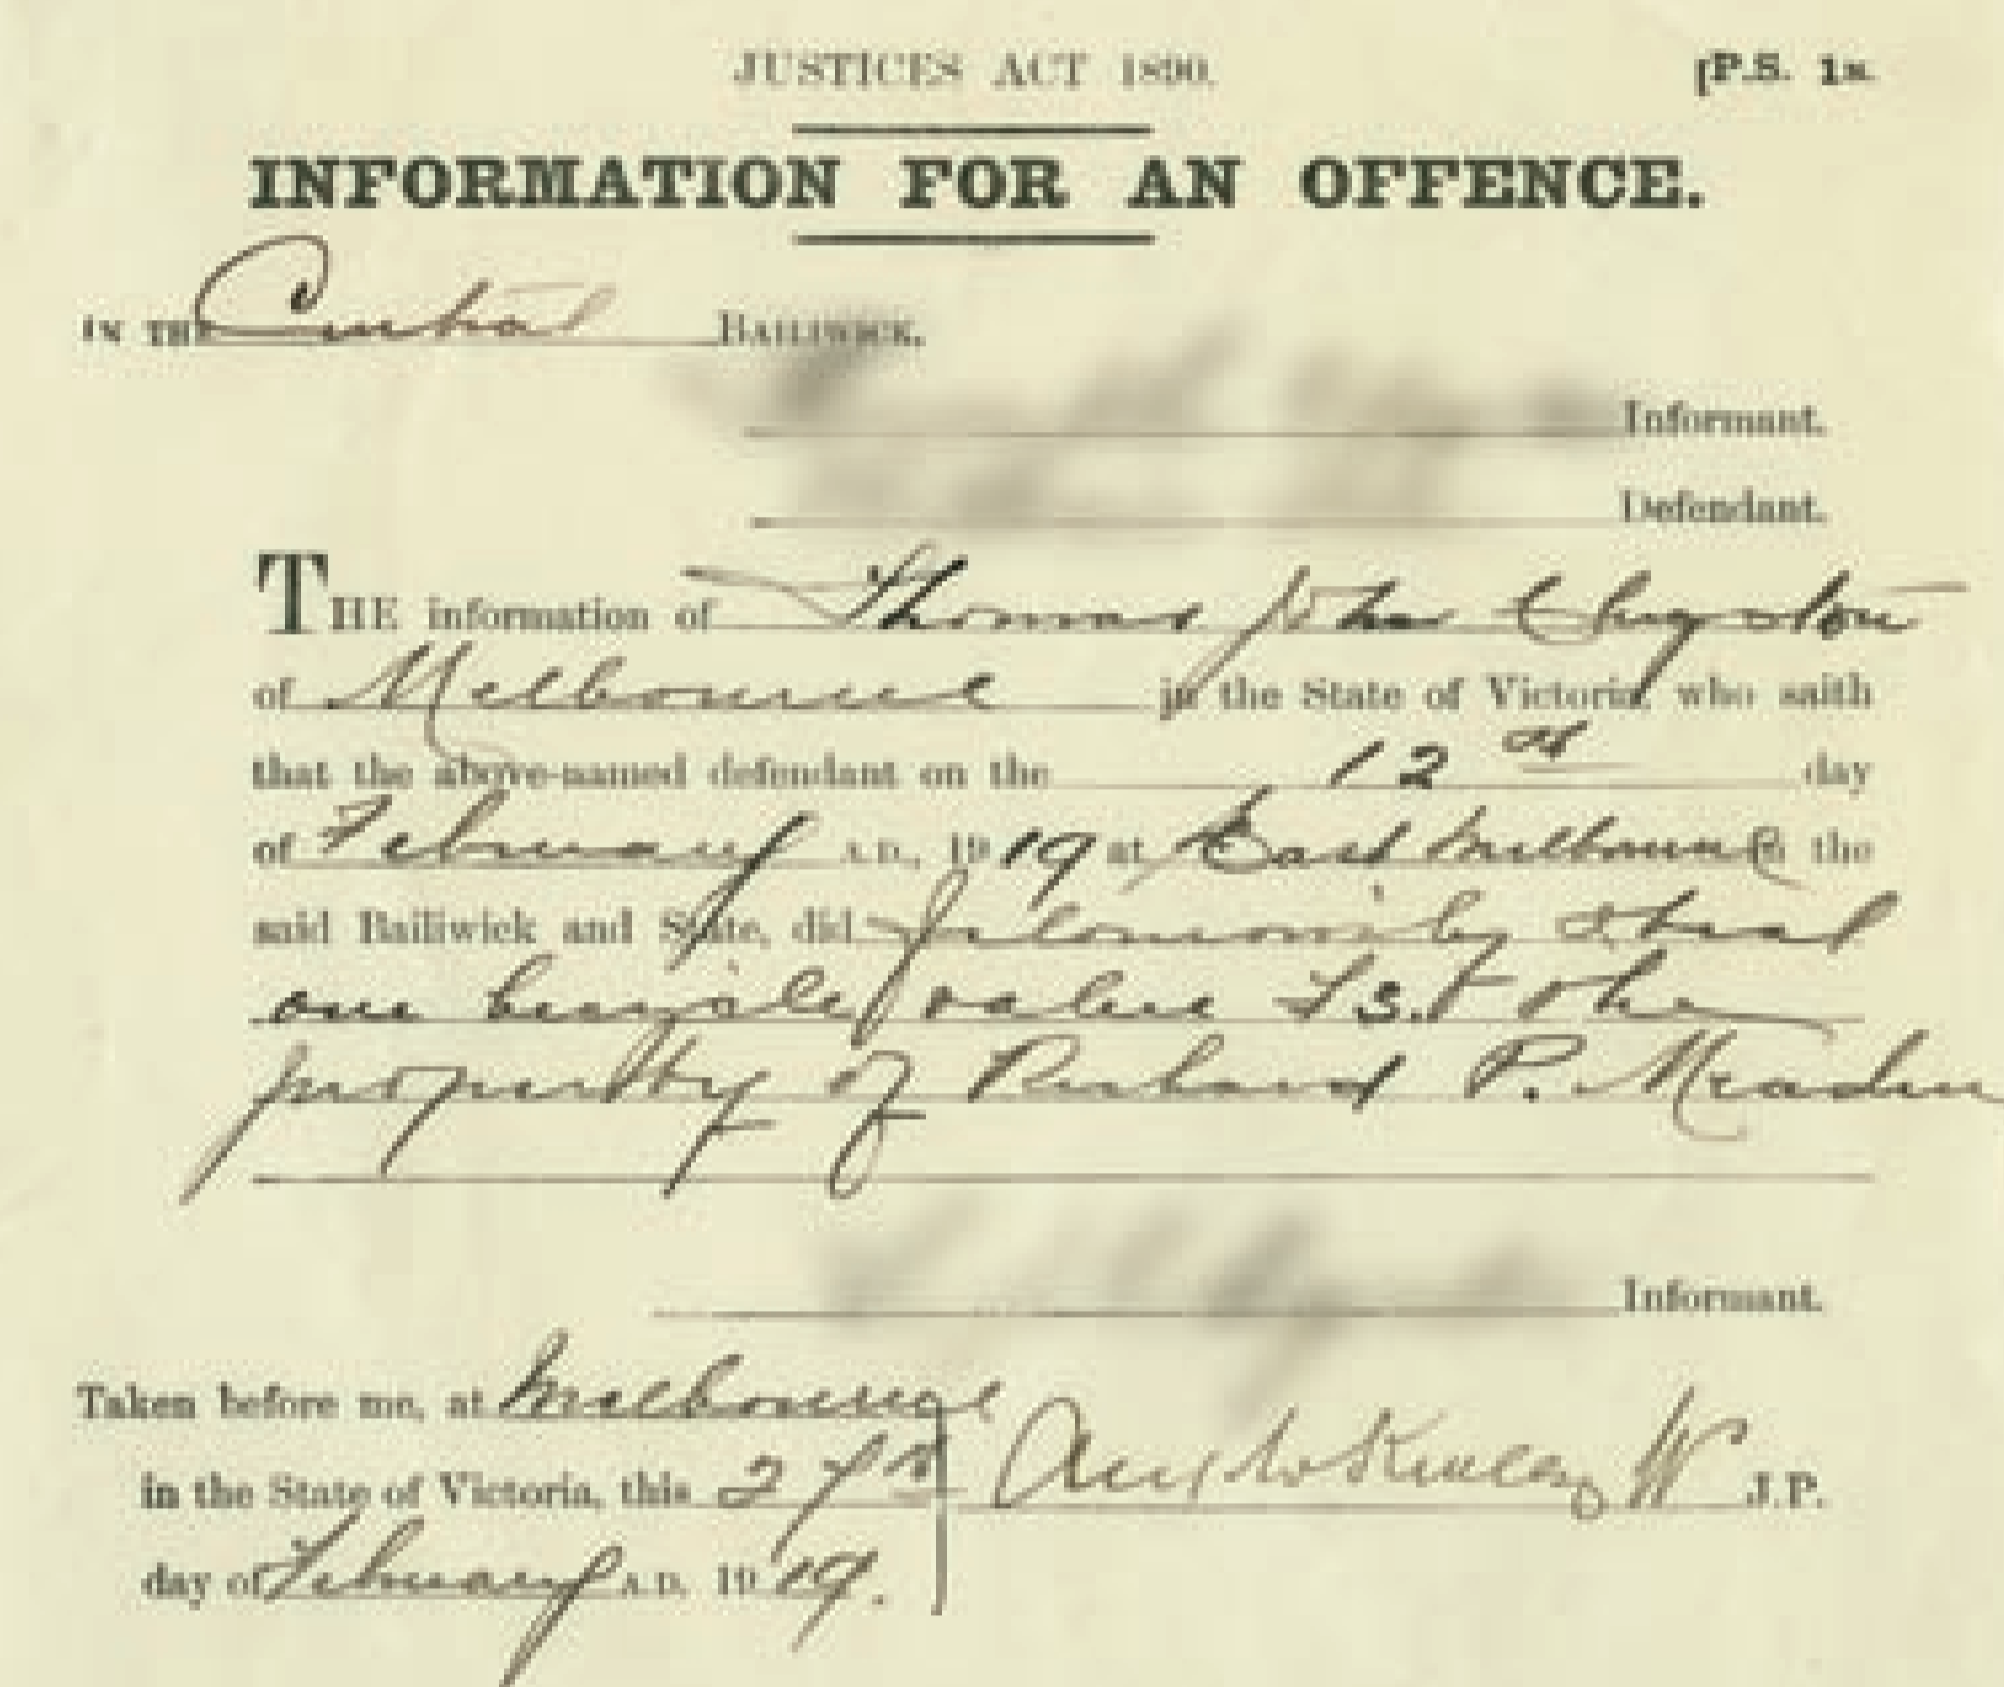 JUSTICES ACT 1890.
[P.S. 18.
INFORMATION FOR AN OFFENCE.
IN THE Central BAILIWICK.
Informant.
Defendant.
THE information of Thomas John Clugston
of Melbourne in the State of Victoria, who saith
that the above-named defendant on the 12th day
of February A.D., 1919 at East Melbourne in the
said Bailiwick and State, did feloniously steal
one bicycle value £3. the
property of Richard P. Meaden
Informant.
Taken before me, at Melbourne
in the State of Victoria, this 27th
J.P.
day of February A.D. 1919.